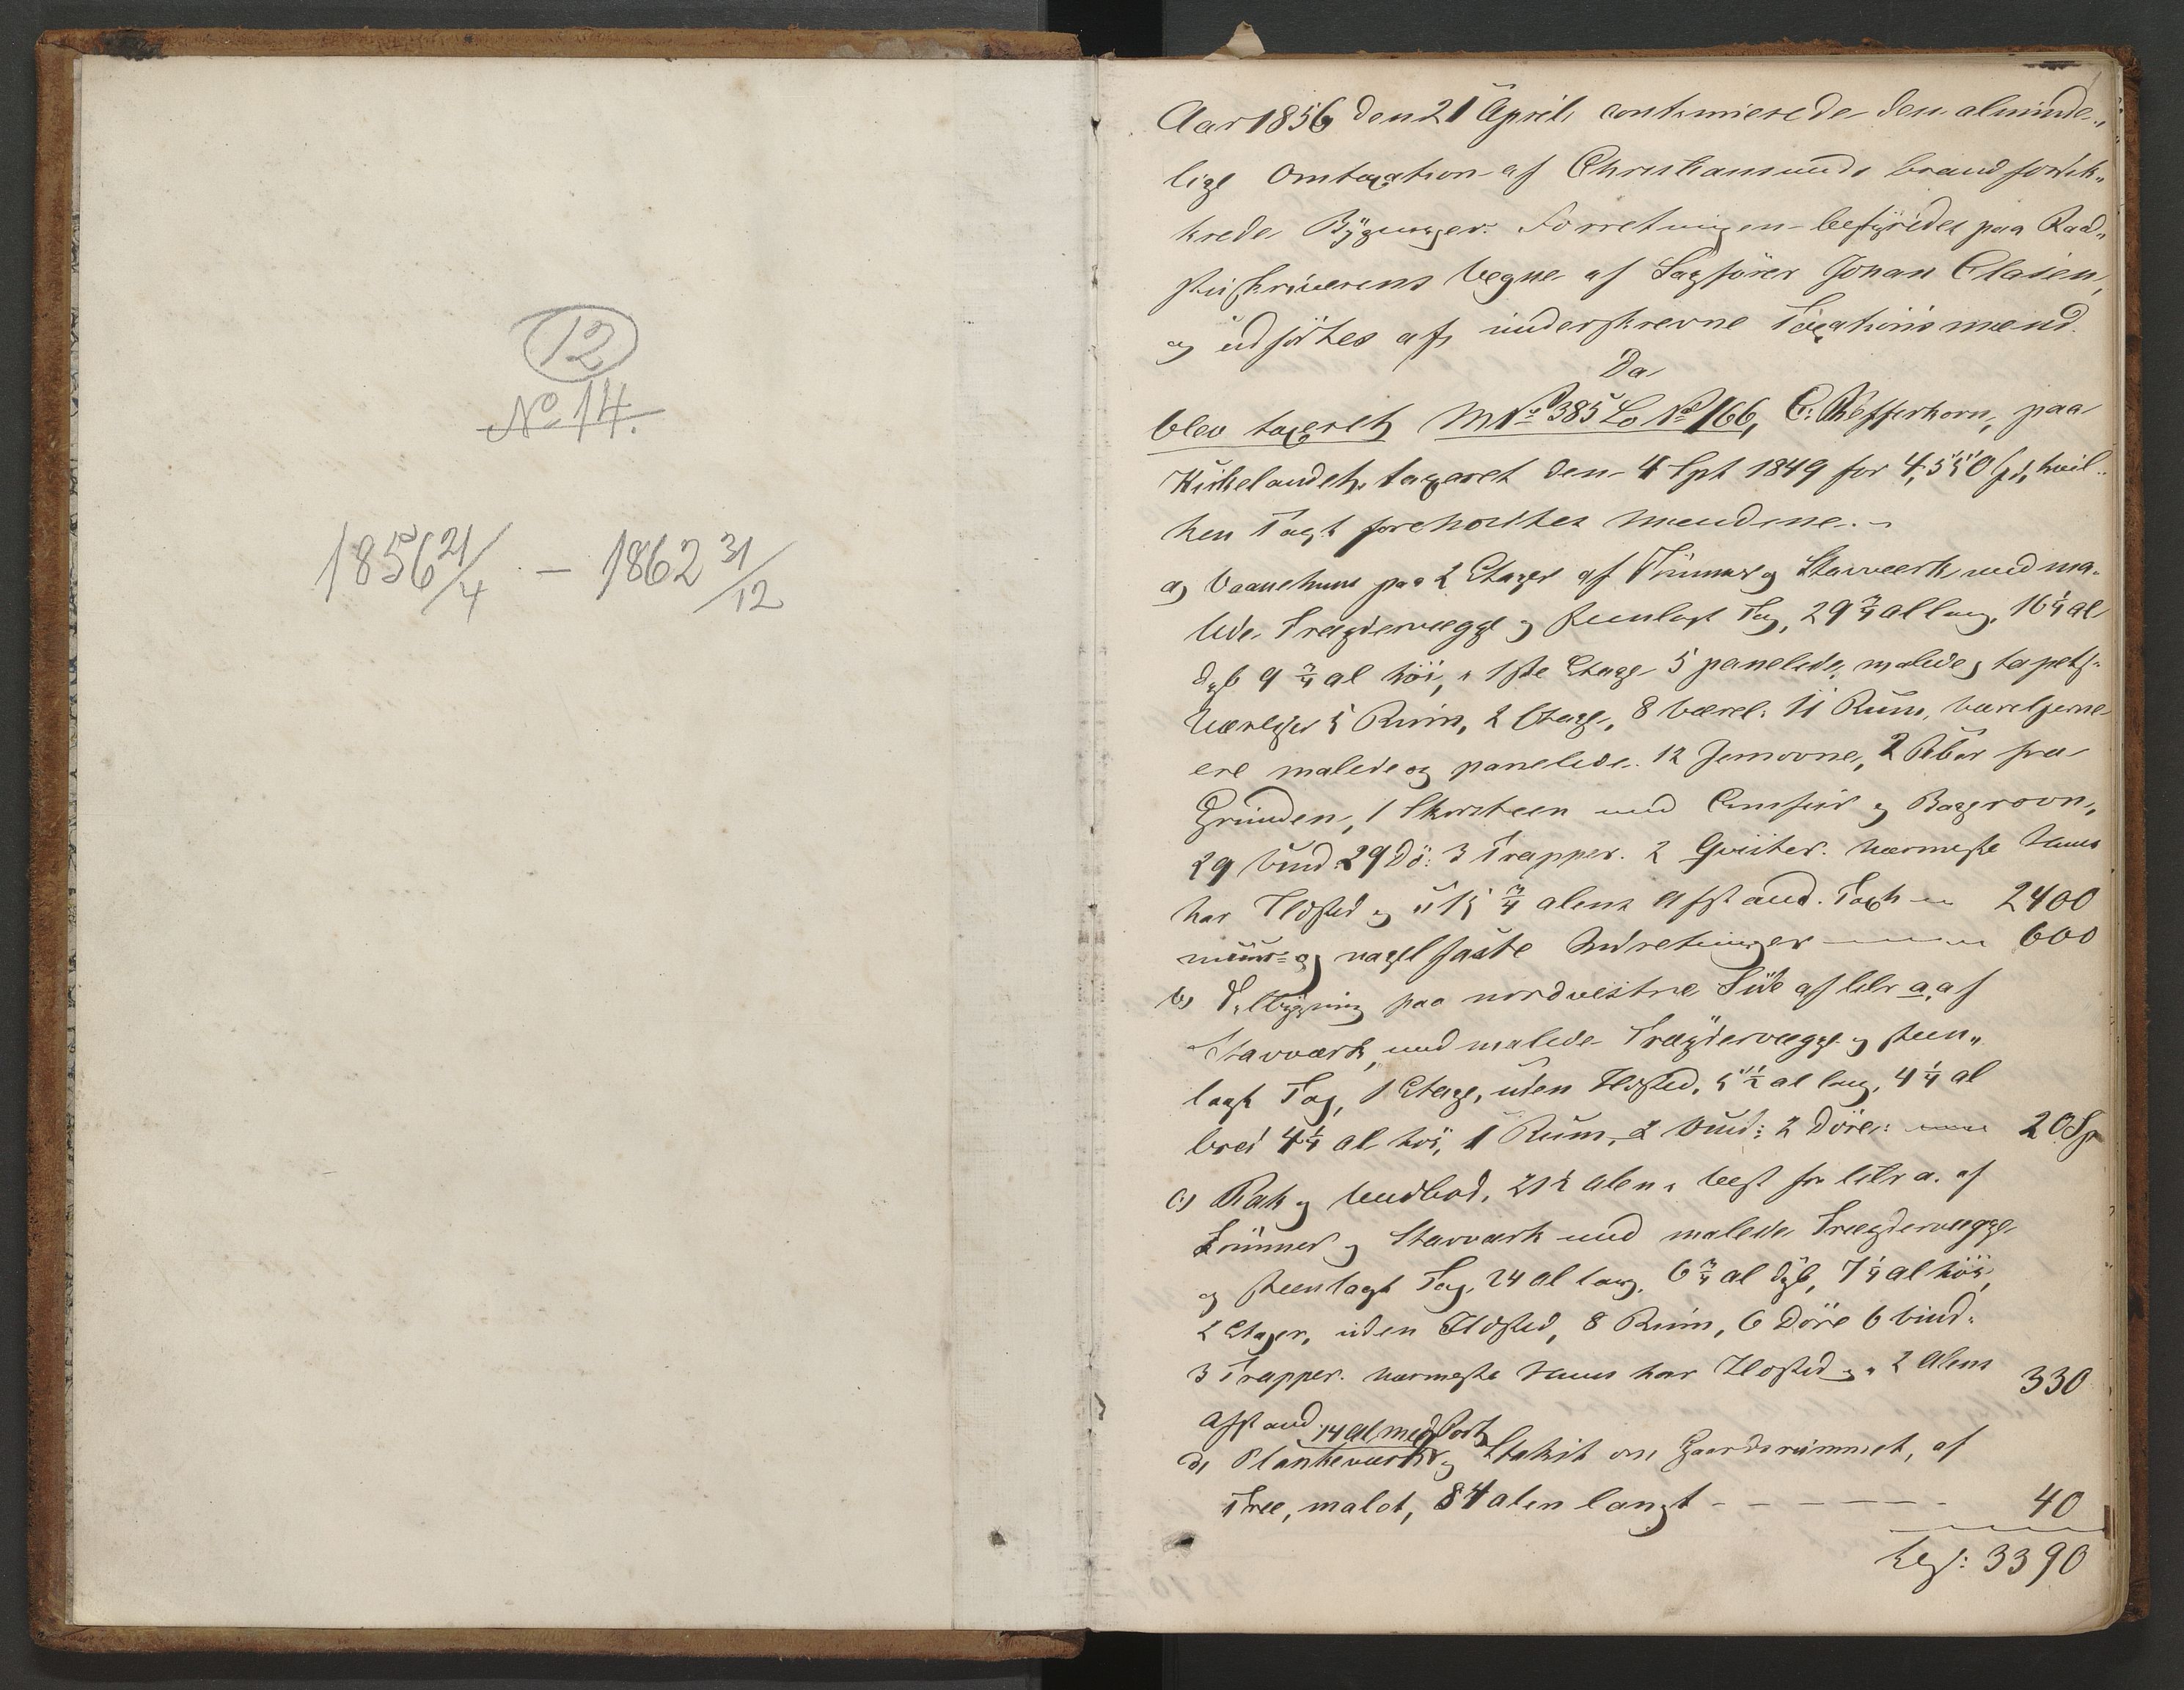 12
No 14.
1856 21/4 - 1862 31/12
Aar 1856 den 21 April continuerede den alminde„
lige Omtaxation af Christiansunds brandforsik„
krede Bygninger. Forretningen bestyredes paa Raad„
stuskriverens Vegne af Sagfører Johan Clasen,
og udførtes af underskrevne Taxationsmænd.
Da
blev taxeret M No 385 Lo No 166, C. paa
Kirkelandet, taxeret den 4 Spt 1849 for 4,550 Spd, hvil„
ken Taxt foreholdtes Mændene. -
a) Vaanehuus paa 2 Etager af Tømmer og Stavværk med ma„
lede Træydervægge og steenlagt Tag, 29 3/4 al lang, 16 1/4 al
dyb 9 3/4 al høi, i 1ste Etage 5 panelede, malede og tapets.
Værelser 5 Rum, 2 Etage, 8 Værel: 11 Rum, Værelserne
ere malede og panelede. 12 Jernovne, 2 Piber fra
Grunden, 1 Skorsteen med Comfuir og Bagerovn,
29 Vind: 29 Dö: 3 Trapper. 2 Qvister. Nærmeste Huus
har Ildsted og i 15 3/4 alens Afstand. Taxt 2400
muur= og nagelfaste Indretninger 600
b) Tilbygning paa nordvestre Side af litr a, af
Stavværk, med malede Træydervægge og steen„
lagt Tag, 1 Etage, uden Ildsted, 5 1/2 al lang, 4 1/4 al
bred 4 1/4 al høi, 1 Rum, 2 Vind: 2 Døre: 20 Sp
c) Rak og Vedbod, 21 1/2 Alen i Vest for litr a. af
Tømmer og Stavværk med malede Træydervægge
og steenlagt Tag, 24 al lang, 6 3/4 al dyb, 7 1/4 al høi,
2 Etager, uden Ildsted, 8 Rum, 6 Døre 6 Vind:
3 Trapper. Nærmeste Huus har Ildsted og i 2 Alens 330
Afstand.
14 al, med Port
d) Plankeværk og Stakit om Gaardsrummet, af
Træ, malet, 84 alen langt - - - - - 40
3390